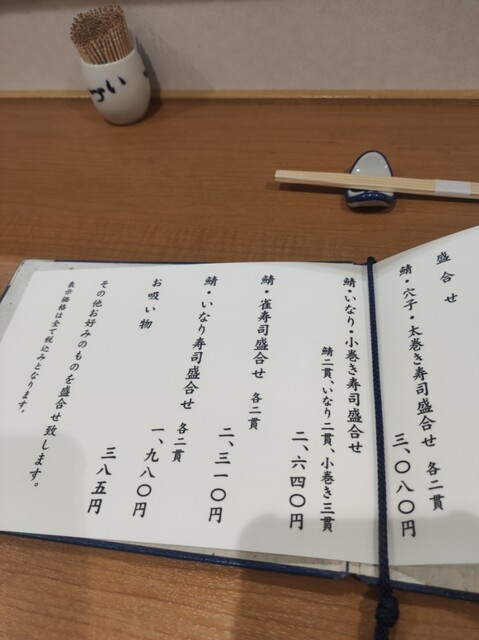 盛合せ
鯖・穴子・太巻き寿司盛合せ 各二貫
三、〇八〇円
鯖・いなり・小巻き寿司盛合せ
鯖二貫、いなり二貫、小巻き三貫
二、六四〇円
鯖・雀寿司盛合せ 各二貫
二、三一〇円
鯖・いなり寿司盛合せ 各二貫
一、九八〇円
お吸い物
三八五円
その他お好みのものを盛合せ致します。
表示価格は全て税込みとなります。